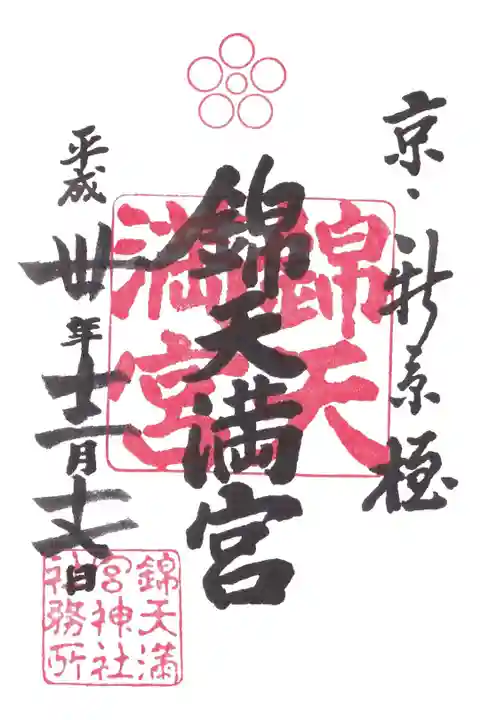 京、新京極
錦天満宮
錦天
満宮
平成卅年十二月 日
錦天満
宮神社
社務所